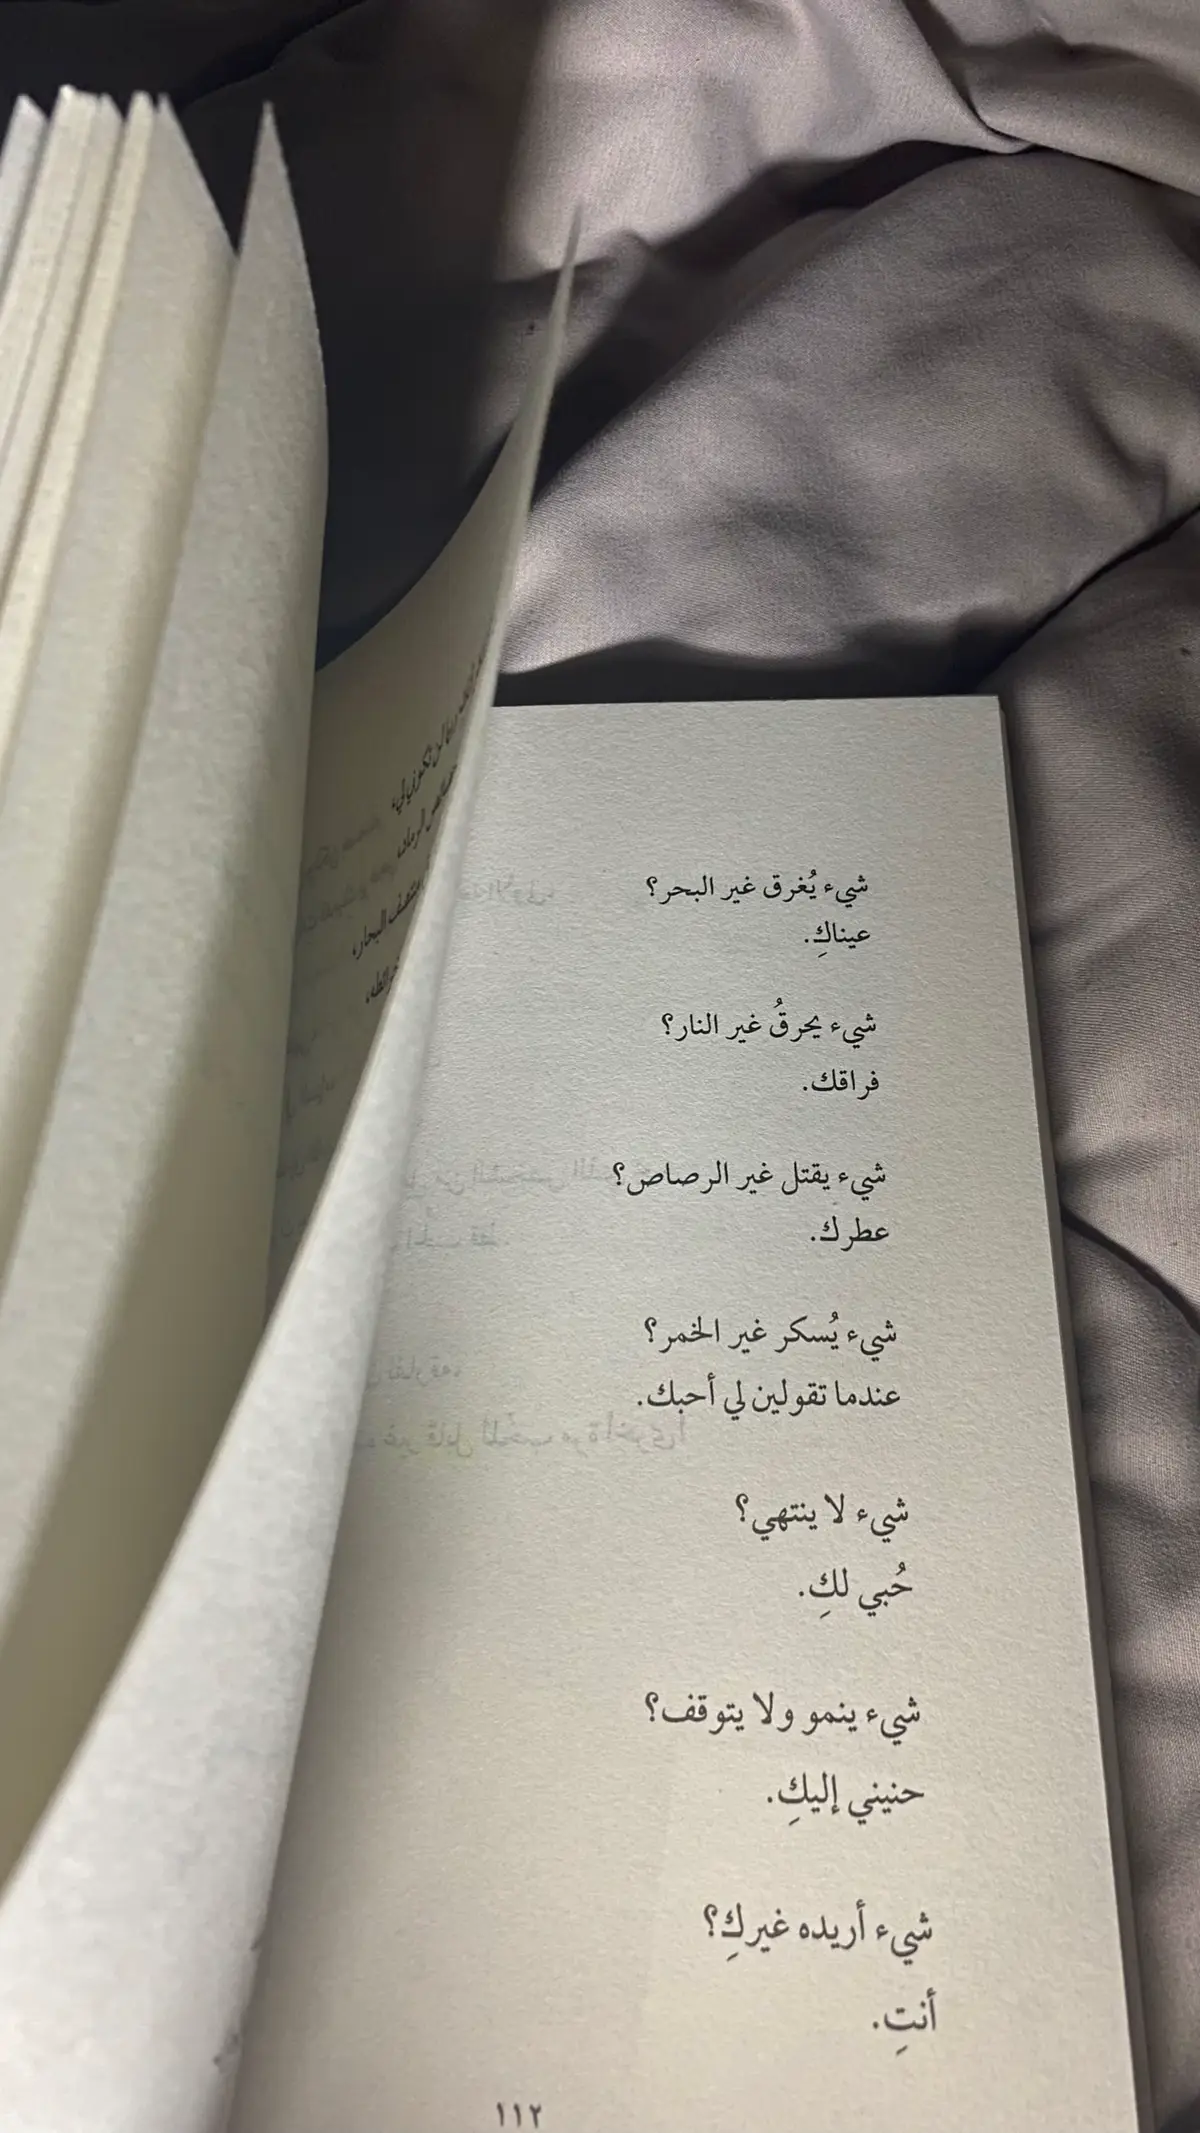 شيء يُغرق غير البحر؟
عيناكِ.
شيء يحرقُ غير النار؟
فراقك.
شيء يقتل غير الرصاص؟
عطرك.
شيء يُسكر غير الخمر؟
عندما تقولين لي أحبك.
شيء لا ينتهي؟
حُبي لكِ.
شيء ينمو ولا يتوقف؟
حنيني إليكِ.
شيء أريده غيركِ؟
أنتِ.
١١٢